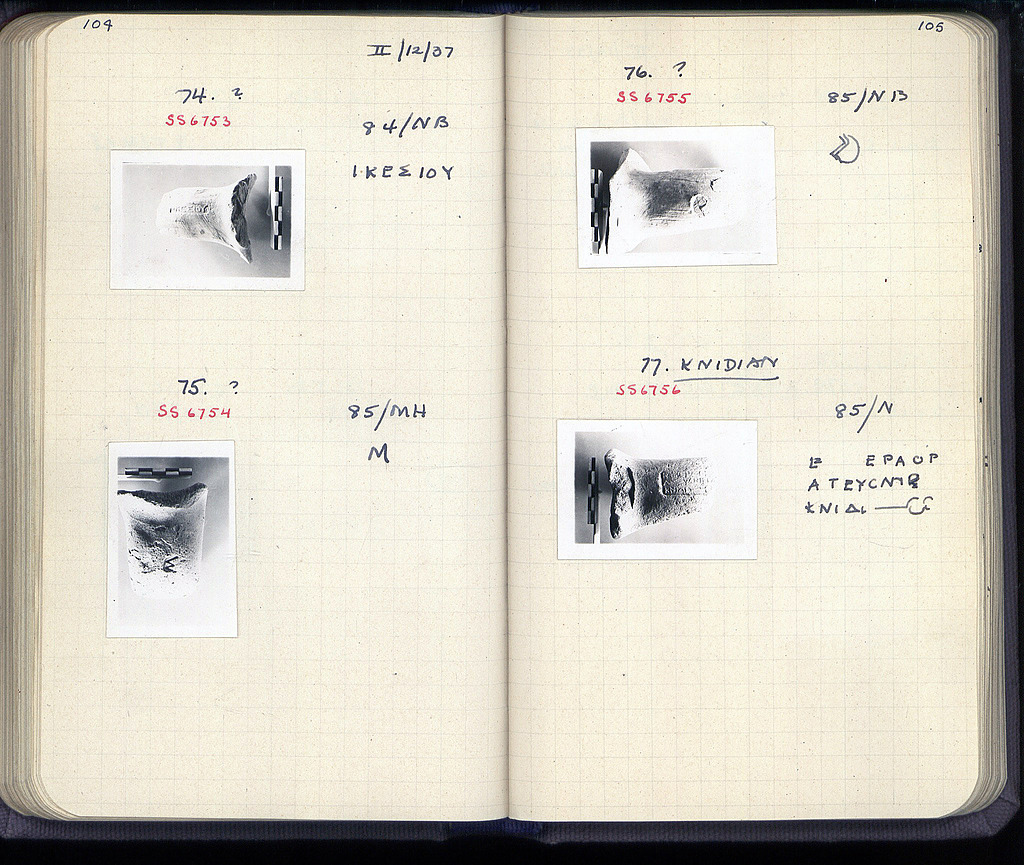 104
II/12/37
74. ?
SS 6753
84/NB
ΙΚΕΣΙΟΥ
75. ?
SS 6754
85/MH
M
105
76. ?
SS 6755
85/NB
77. KNIDIAN
SS 6756
85/N
Ε ΕΡΑΟΡ
ΑΤΕΥC
ΚΝΙΔΙ